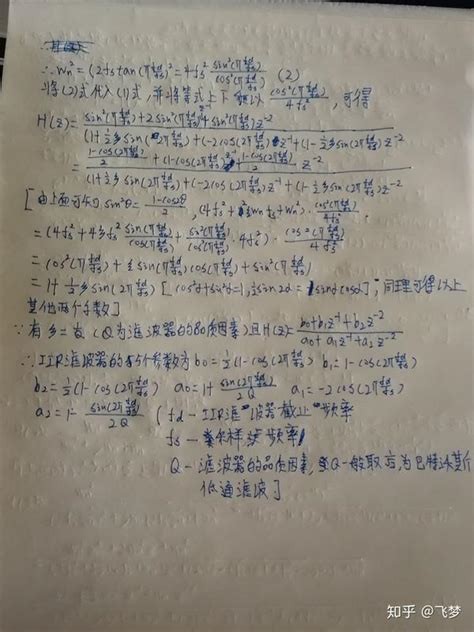 ∴ wn² = (2fs tan(π fd/fs))² = 4fs² sin²(π fd/fs) / cos²(π fd/fs) (2)
将(2)式代入(1)式,并将等式上下 乘以 cos²(π fd/fs) / 4fs²,可得
H(z) = sin²(π fd/fs) + 2sin²(π fd/fs) z⁻¹ + sin²(π fd/fs) z⁻²
(1+½ξ sin(2π fd/fs) + (-2cos(2π fd/fs)) z⁻¹ + (1-½ξ sin(2π fd/fs)) z⁻²
= (1-cos(2π fd/fs))/2 + (1-cos(2π fd/fs)) z⁻¹ + (1-cos(2π fd/fs))/2 z⁻²
(1+½ξ sin(2π fd/fs) + (-2cos(2π fd/fs)) z⁻¹ + (1-½ξ sin(2π fd/fs)) z⁻²
[由上面可知 sin²θ = (1-cos2θ)/2, (4fs² + 2ξ wn fs + wn²) · cos²(π fd/fs) / 4fs²
= (4fs² + 4ξfs² sin(π fd/fs)/cos(π fd/fs) + sin²(π fd/fs)/cos²(π fd/fs) · 4fs²) · cos²(π fd/fs) / 4fs²
= cos²(π fd/fs) + ξ sin(π fd/fs) cos(π fd/fs) + sin²(π fd/fs)
= 1+½ξ sin(2π fd/fs) [cos²α+sin²α=1, ½sin2α = sinα cosα]; 同理可得以上
其他两个参数]
∵ 有 ξ = 1/Q (Q为滤波器的品质因素) 且 H(z) = (b0+b1z⁻¹+b2z⁻²) / (a0+a1z⁻¹+a2z⁻²)
∴ IIR滤波器的 个参数为 b0=½(1-cos(2π fd/fs)) b1=1-cos(2π fd/fs)
b2=½(1-cos(2π fd/fs)) a0=1+ sin(2π fd/fs)/2Q a1=-2cos(2π fd/fs)
a2=1- sin(2π fd/fs)/2Q [fd - IIR滤波器截止频率
fs - 采样 频率
Q - 滤波器的品质因素, Q一般取 为巴特沃斯
低通滤波]
知乎 @飞梦